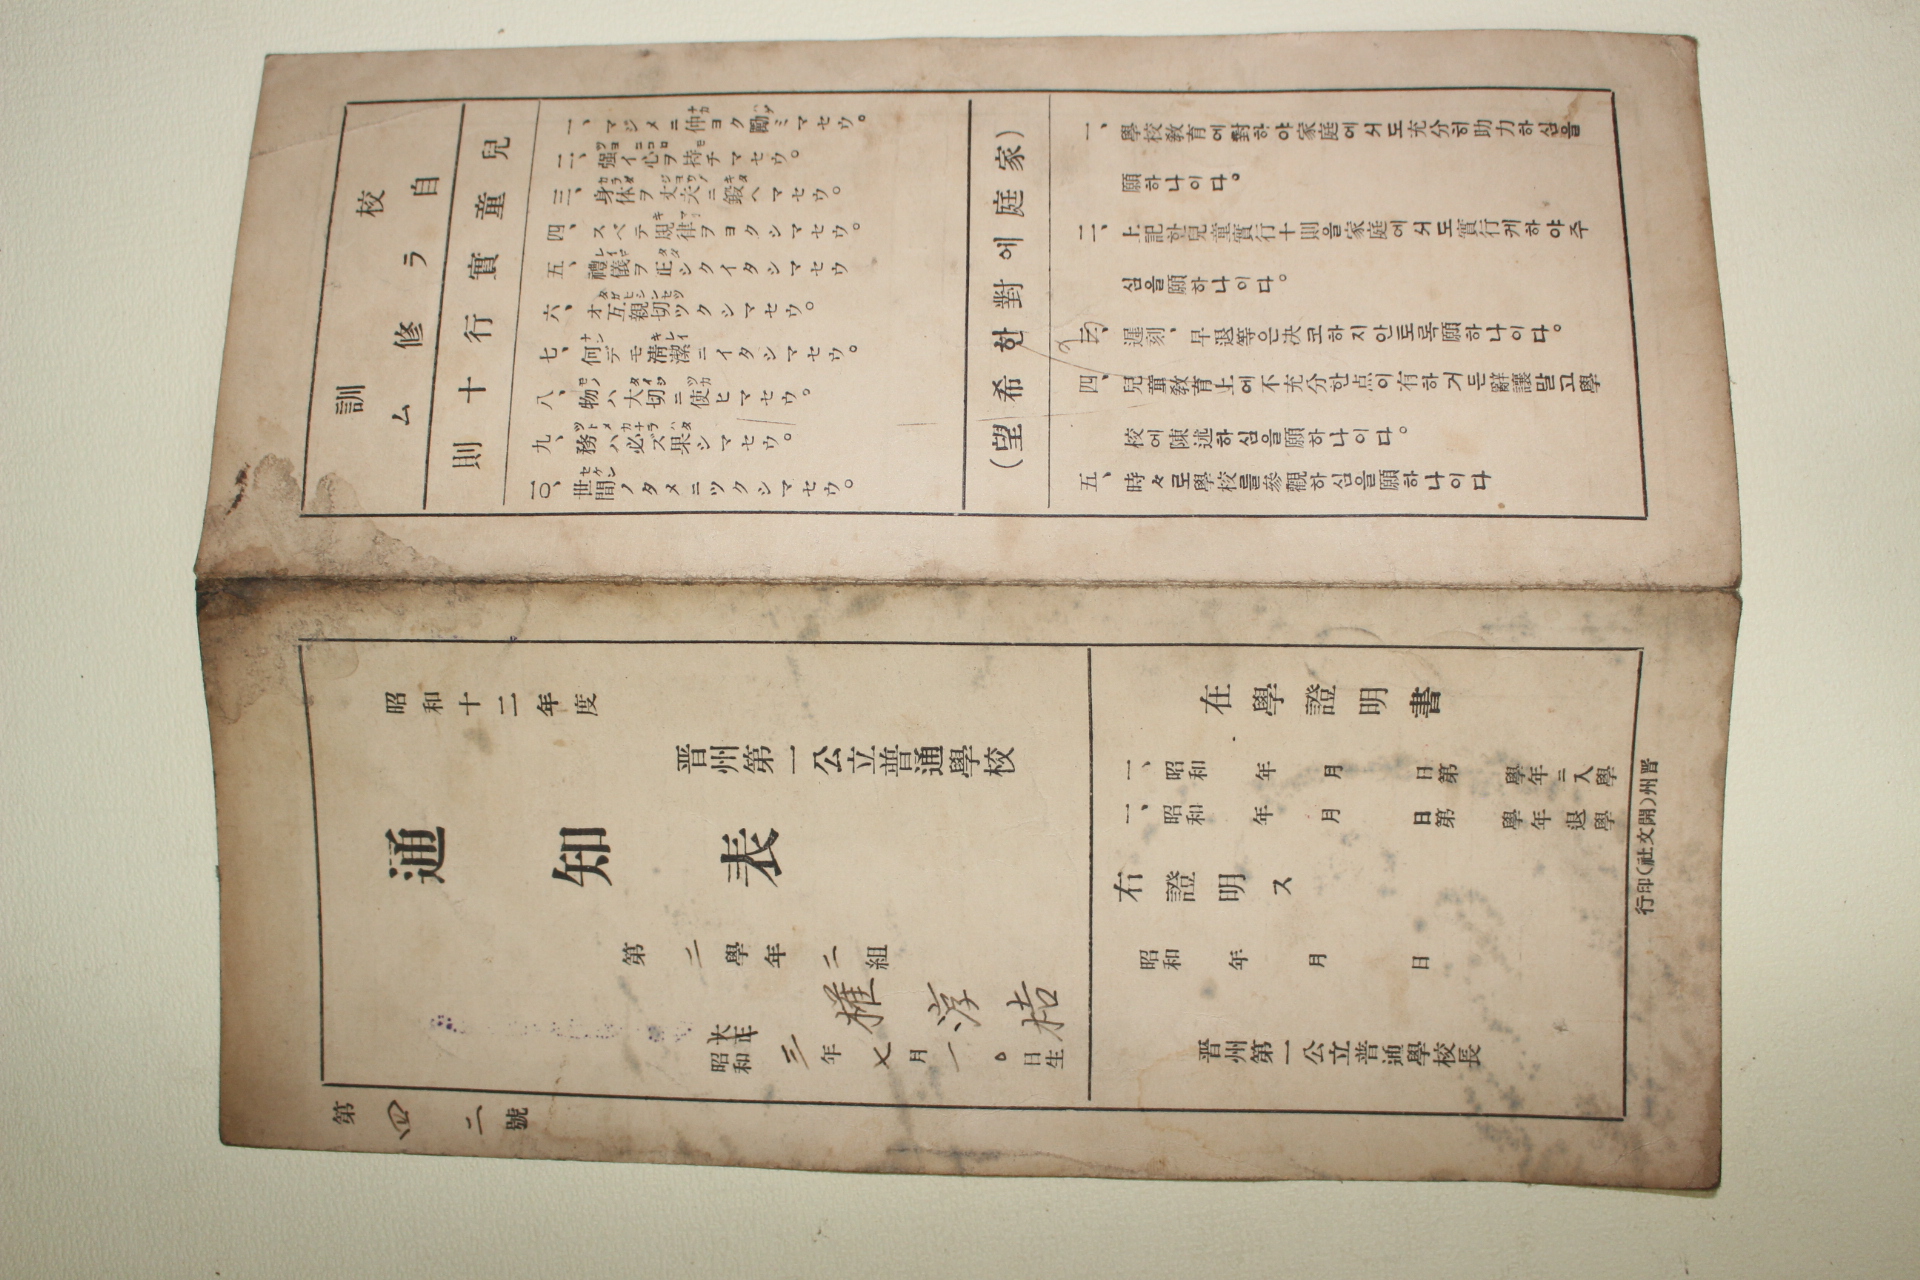 校訓
自ラ修ム
兒童實行十則
一、マジメニ仲ヨク勵ミマセウ。
二、強イ心ヲ持チマセウ。
三、身体ヲ丈夫ニ鍛ヘマセウ。
四、スベテ規律ヲヨクシマセウ。
五、禮儀ヲ正シクイタシマセウ
六、オ互親切ツクシマセウ。
七、何デモ清潔ニイタシマセウ。
八、物ハ大切ニ使ヒマセウ。
九、務ハ必ズ果シマセウ。
一〇、世間ノタメニツクシマセウ。
(家庭에對한希望)
一、學校敎育에對하야家庭에서도充分히助力하심을
願하나이다。
二、上記한兒童實行十則을家庭에서도實行케하야주
심을願하나이다。
三、遲刻、早退等은决코하지안토록願하나이다。
四、兒童敎育上에不充分한点이有하거든辭讓말고學
校에陳述하심을願하나이다。
五、時々로學校를參觀하심을願하나이다
昭和十二年度
晋州第一公立普通學校
通知表
第二學年二組
權淳桔
大正
昭和三年七月一〇日生
第四二號
在學證明書
一、昭和 年 月 日第 學年ニ入學
一、昭和 年 月 日第 學年退學
右證明ス
昭和 年 月 日
晋州第一公立普通學校長
晋州(開文社)印行